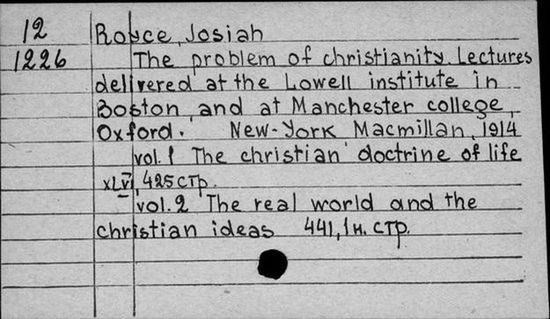 12 Royce, Josiah
1226 The problem of christianity. Lectures
delivered at the Lowell institute in
Boston and at Manchester college,
Oxford. New-York Macmillan, 1914
vol. 1 The christian doctrine of life
XLVI, 425 стр.
vol. 2 The real world and the
christian ideas 441, 1 н. стр.